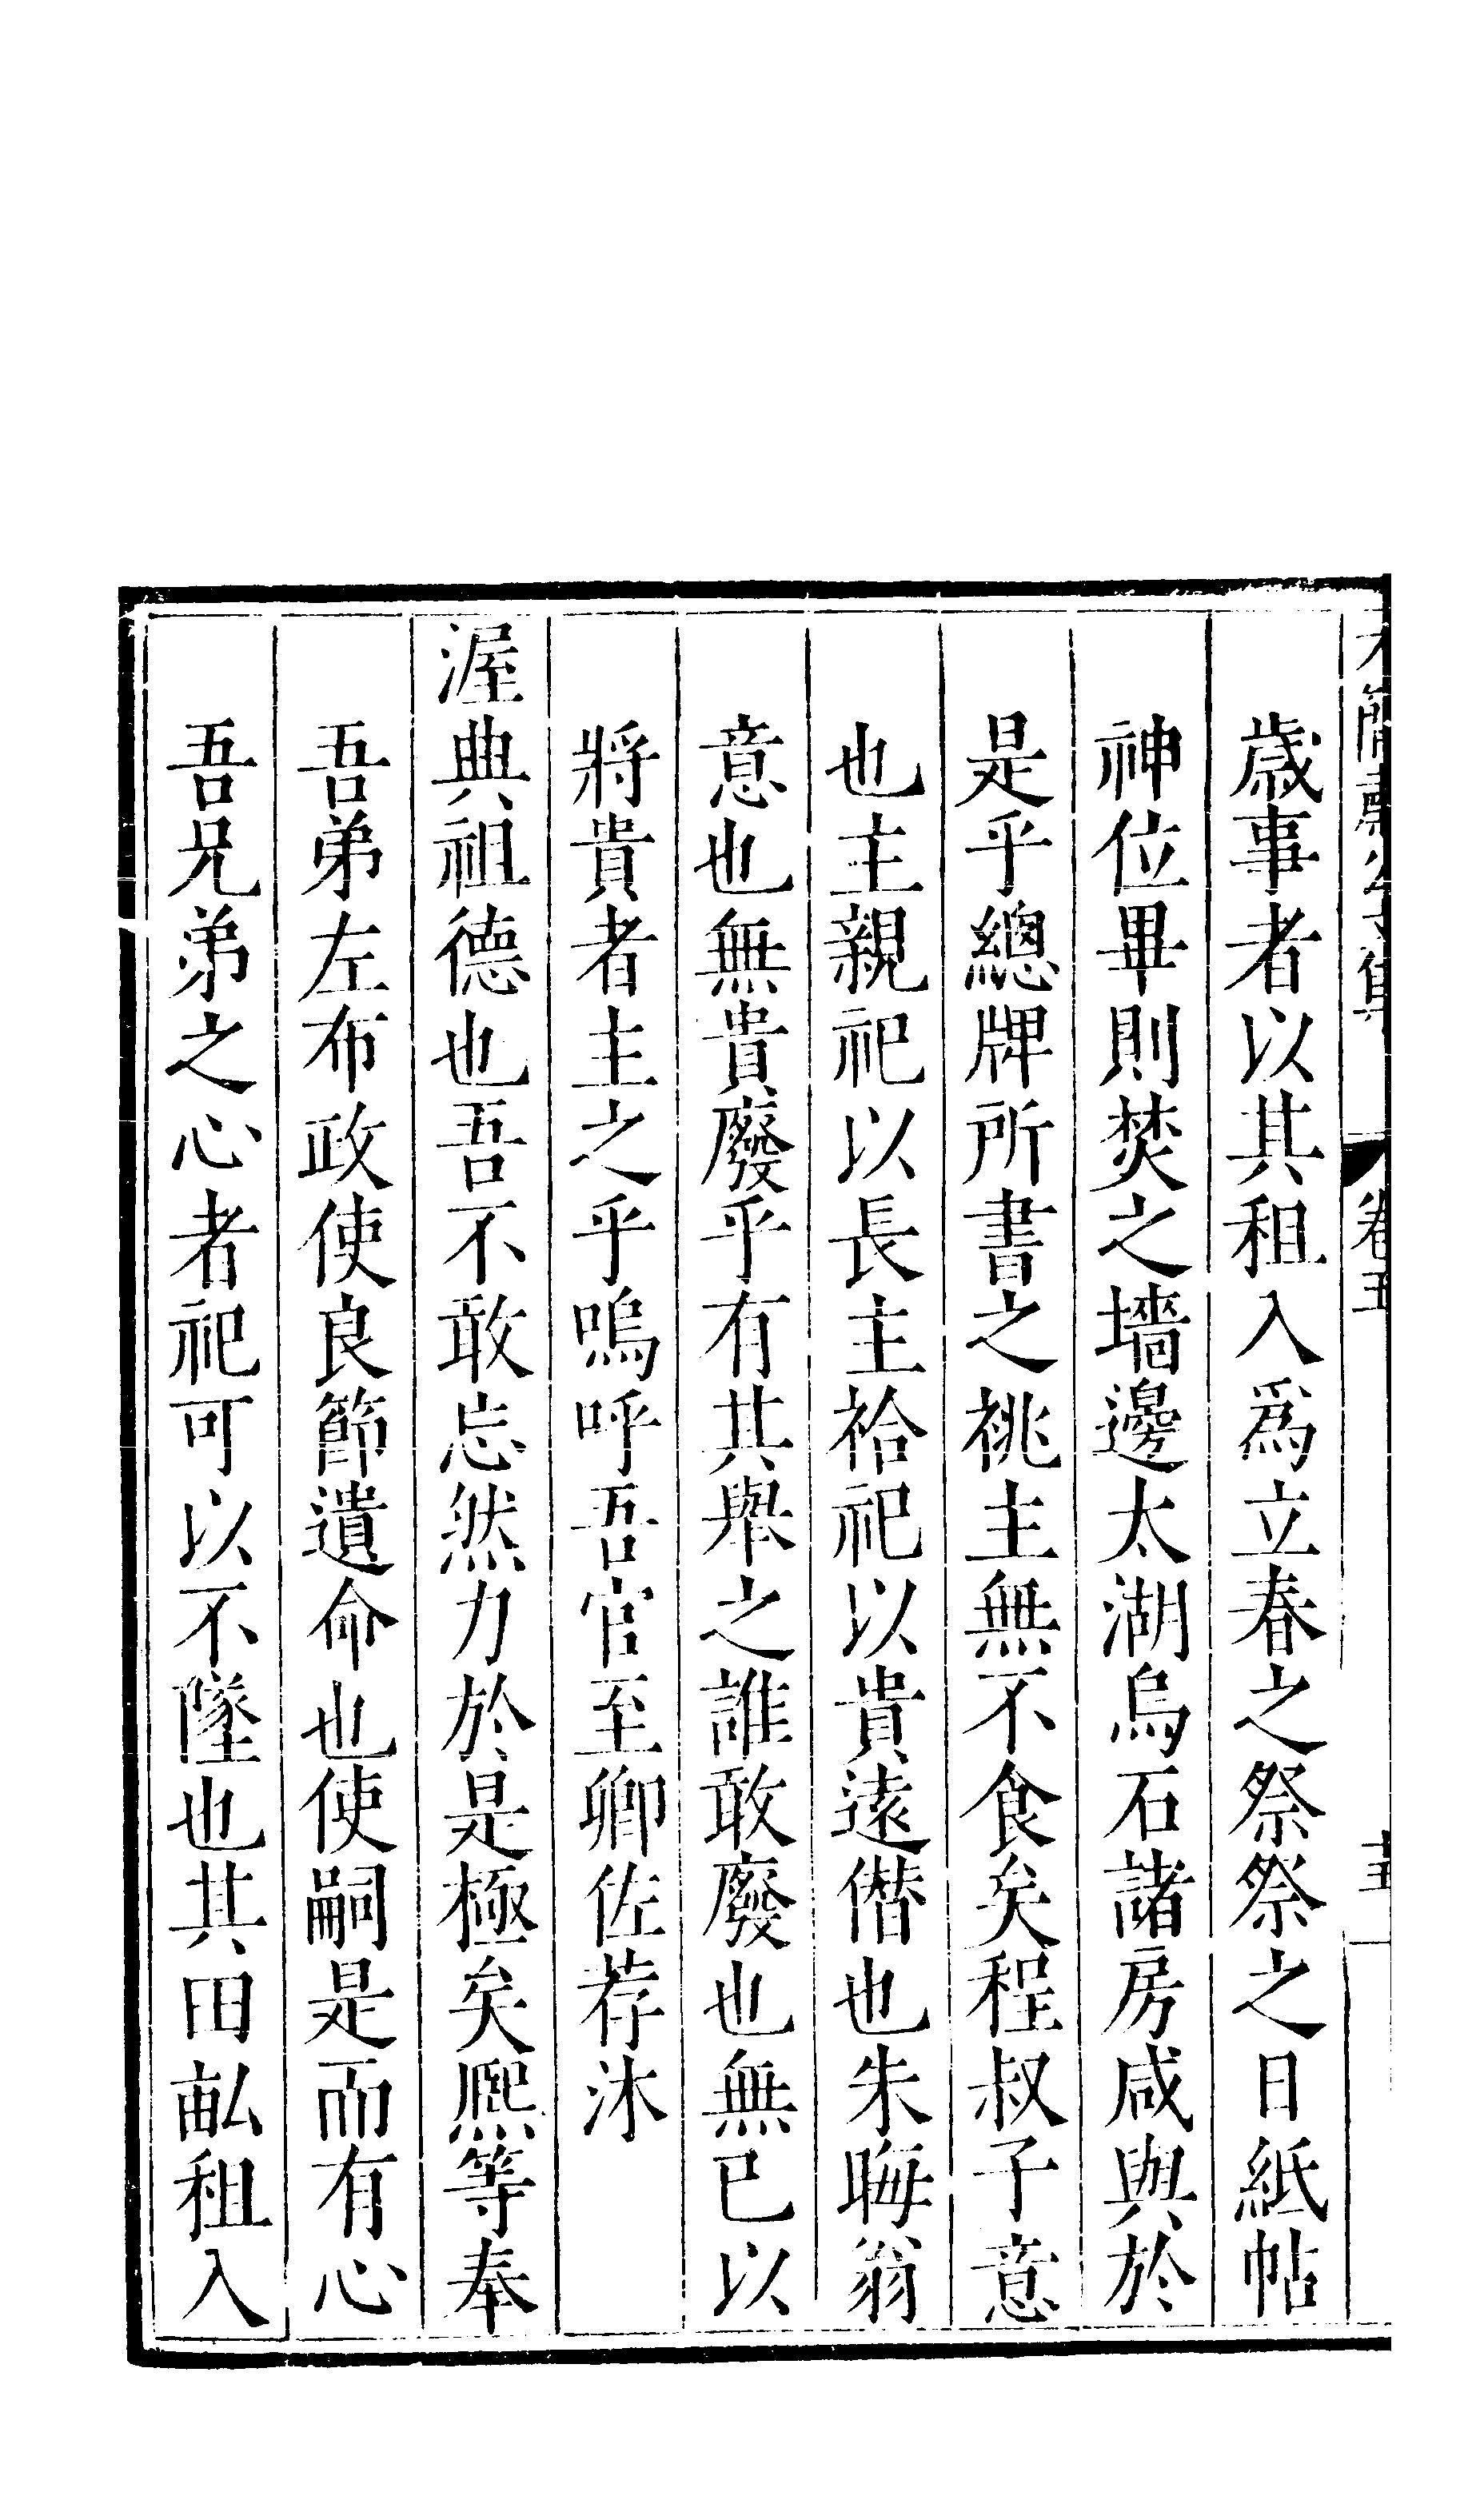 卷五
歲事者以其租入爲立春之祭祭之日紙帖
神位畢則焚之墻邊太湖烏石諸房咸與於
是乎總牌所書之祧主無不食矣程叔子意
也主親祀以長主祫祀以貴遠僭也朱晦翁
意也無貴廢乎有其舉之誰敢廢也無已以
將貴者主之乎嗚呼吾官至卿佐荐沐
渥典祖德也吾不敢忘然力於是極矣熈等奉
吾弟左布政使良節遺命也使嗣是而有心
吾兄弟之心者祀可以不墜也其田畆租入